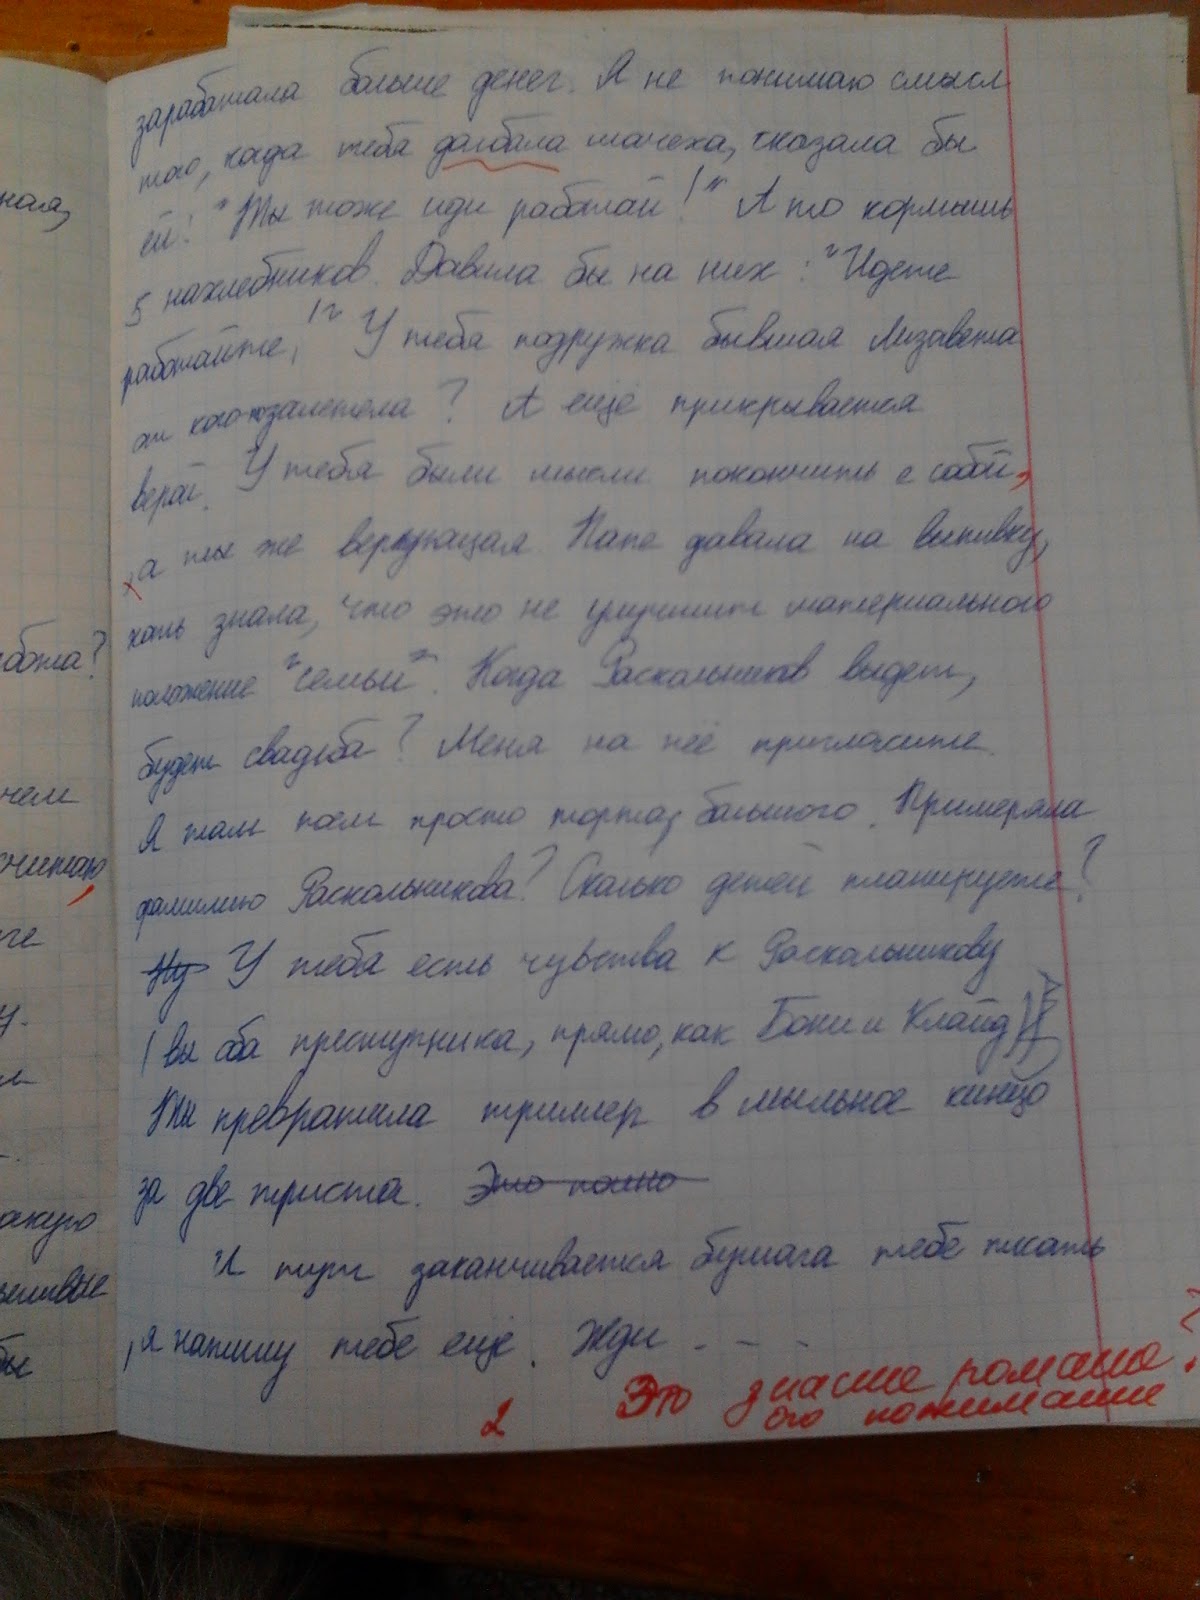 заработала больше денег. Я не понимаю смысл
того, када тебя далбала мачеха, сказала бы
ей: "Ты тоже иди работай!" А то кормишь
5 нахлебников. Давила бы на них: "Идете
работайте!" У тебя подружка бывшая Лизавета
от кого-то залетела? А ещё прикрывается
верой. У тебя были мысли покончить с собой,
,а ты же верующая. Папе давала на выпивку,
хоть знала, что это не улучшит материального
положение "семьи". Когда Раскольников выдет,
будет свадьба? Меня на неё пригласите.
Я там поем просто торта, большого. Примеряла
фамилию Раскольникова? Сколько детей планируете?
Ну У тебя есть чувства к Раскольникову
(вы оба преступника, прямо, как Бони и Клайд)
Ты превратила триллер в мыльное кинцо
за две триста. Это полно
И тут заканчивается бумага тебе писать
,я напишу тебе ещё. Жди - - -
2 Это знание романа?
его понимание
ная,
бота?
чем
считаю,
те
у.
акую
бы